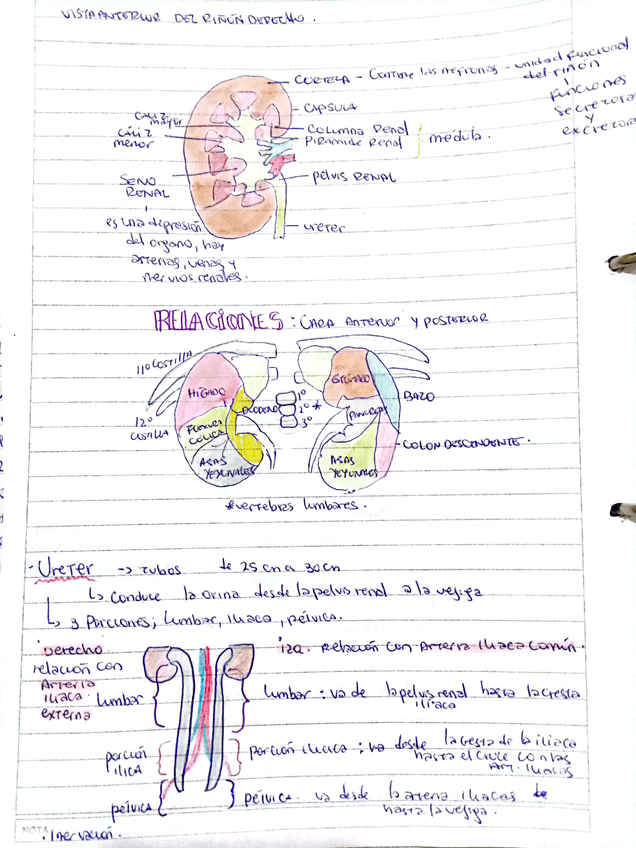 VISTA ANTERIOR DEL RIÑON DERECHO.
CORTEZA - Contiene las nefronas - unidad funcional del riñón
funciones
secretoras
y
excretoras
CAPSULA
Columna Renal
Piramide Renal
médula.
pelvis RENAL
ureter
Cáliz mayor
Cáliz menor
SENO RENAL
es una depresión
del organo, hay
arterias, venas y
nervios renales.
RELACIONES: CARA ANTERIOR Y POSTERIOR
11º COSTILLA
HIGADO
12º COSTILLA
FLEXURA COLICA
DUODENO
ASAS YEYUNALES
1º
2º *
3º
BAZO
PANCREAS
COLON DESCENDENTE.
ASAS YEYUNALES
*vertebras lumbares.
· URETER -> TUBOS de 25 cm a 30 cm
↳ Conduce la orina desde la pelvis renal a la vejiga
↳ 3 Porciones; lumbar, iliaca, pélvica.
Derecho
relación con
Arteria
iliaca
externa
izq. Relación con Arteria iliaca común.
lumbar
lumbar: va de la pelvis renal hasta la cresta
iliaca
porción
ILICA
porción iliaca: va desde la cresta de la iliaca
hasta el cruce con las
Art. iliacas
pélvica
pélvica. va desde la arteria iliacas
hasta la vejiga.
NOTA
· Inervación.